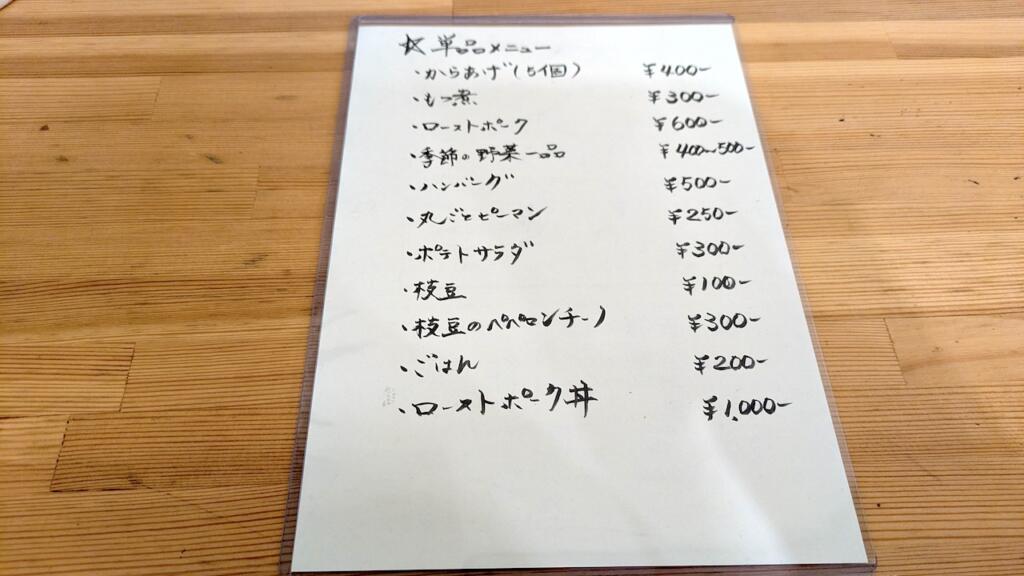 ☆単品メニュー
・からあげ(5個) ¥400-
・もつ煮 ¥300-
・ローストポーク ¥600-
・季節の野菜一品 ¥400~500-
・ハンバーグ ¥500-
・丸ごとピーマン ¥250-
・ポテトサラダ ¥300-
・枝豆 ¥100-
・枝豆のペペロンチーノ ¥300-
・ごはん ¥200-
・ローストポーク丼 ¥1,000-